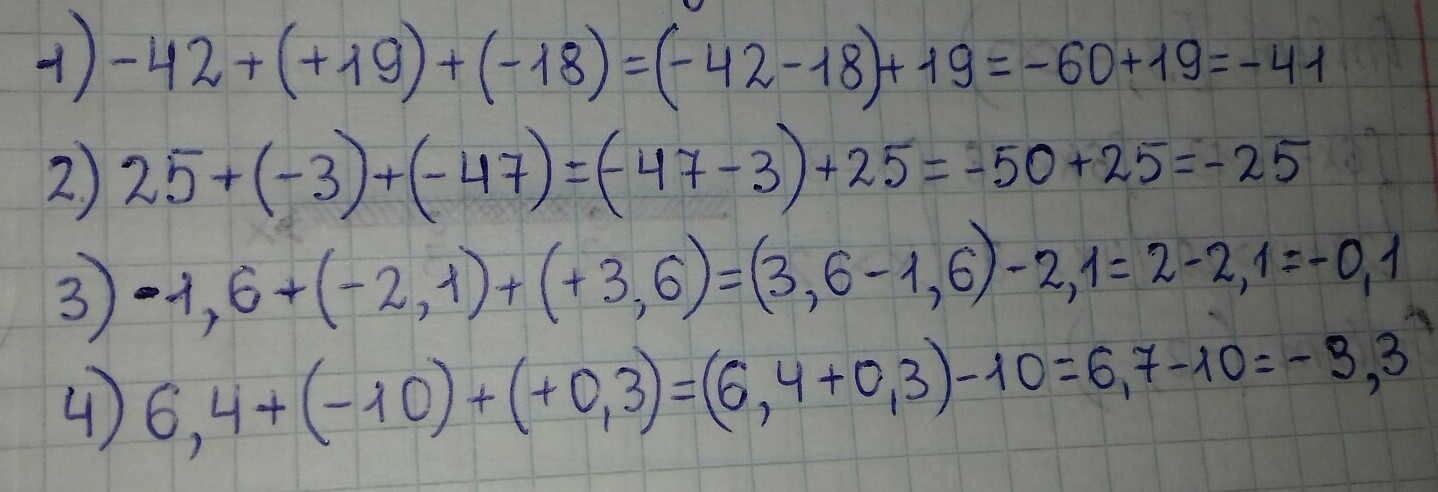 1) -42+(+19)+(-18)=(-42-18)+19=-60+19=-41
2) 25+(-3)+(-47)=(-47-3)+25=-50+25=-25
3) -1,6+(-2,1)+(+3,6)=(3,6-1,6)-2,1=2-2,1=-0,1
4) 6,4+(-10)+(+0,3)=(6,4+0,3)-10=6,7-10=-3,3